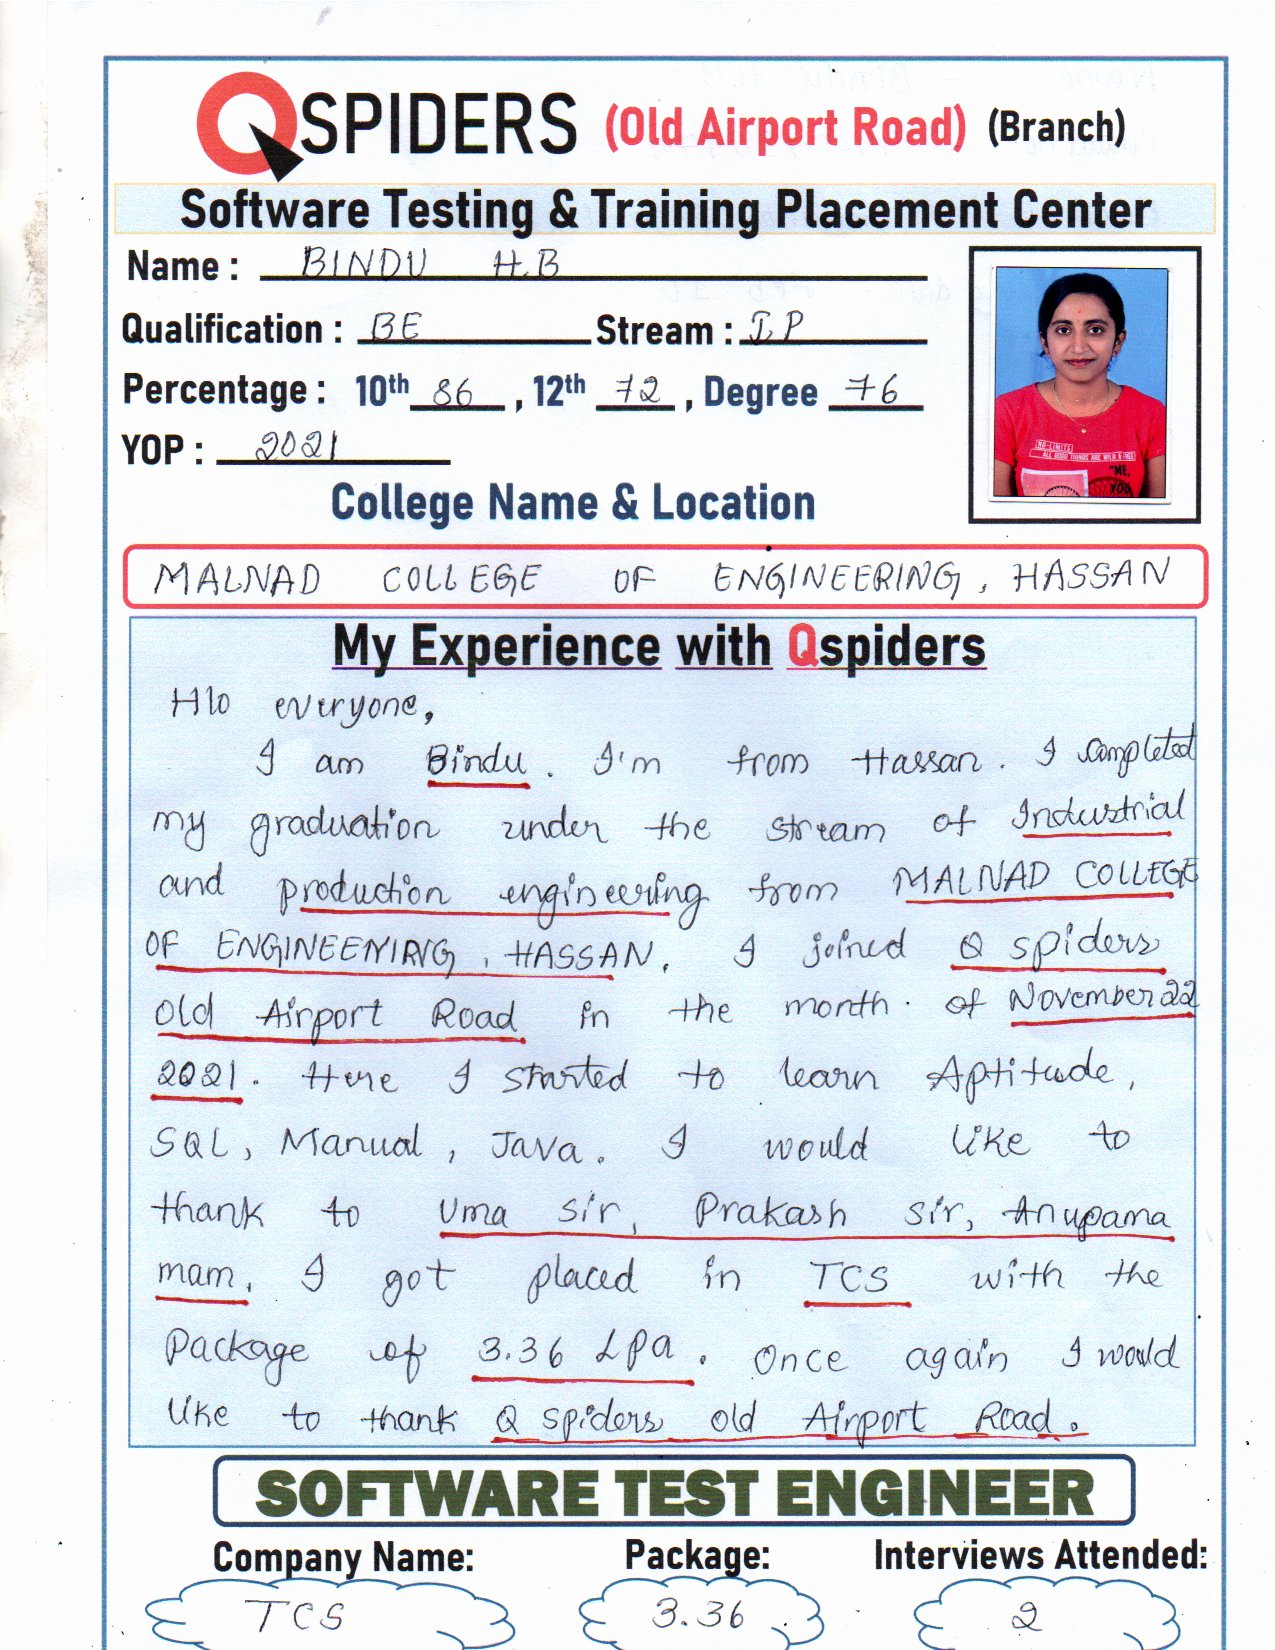 QSPIDERS (Old Airport Road) (Branch)
Software Testing & Training Placement Center
Name : BINDU H.B
Qualification : BE Stream : IP
Percentage : 10th 86 , 12th 72 , Degree 76
YOP : 2021
NO-LIMITS
ALL GOOD THINGS ARE WILD & FREE
"ME,
YOU
College Name & Location
MALNAD COLLEGE OF ENGINEERING, HASSAN
My Experience with Qspiders
Hlo everyone,
I am Bindu. I'm from Hassan. I completed
my graduation under the stream of Industrial
and production engineering from MALNAD COLLEGE
OF ENGINEEMIRNG, HASSAN. I joined Q spiders
old Airport Road in the month. of November 22
2021. Here I started to learn Aptitude,
SQL, Manual, Java. I would like to
thank to Uma sir, Prakash sir, Anupama
mam. I got placed in TCS with the
Package of 3.36 LPA. Once again I would
like to thank Q spiders old Airport Road.
SOFTWARE TEST ENGINEER
Company Name: Package: Interviews Attended:
TCS 3.36 2